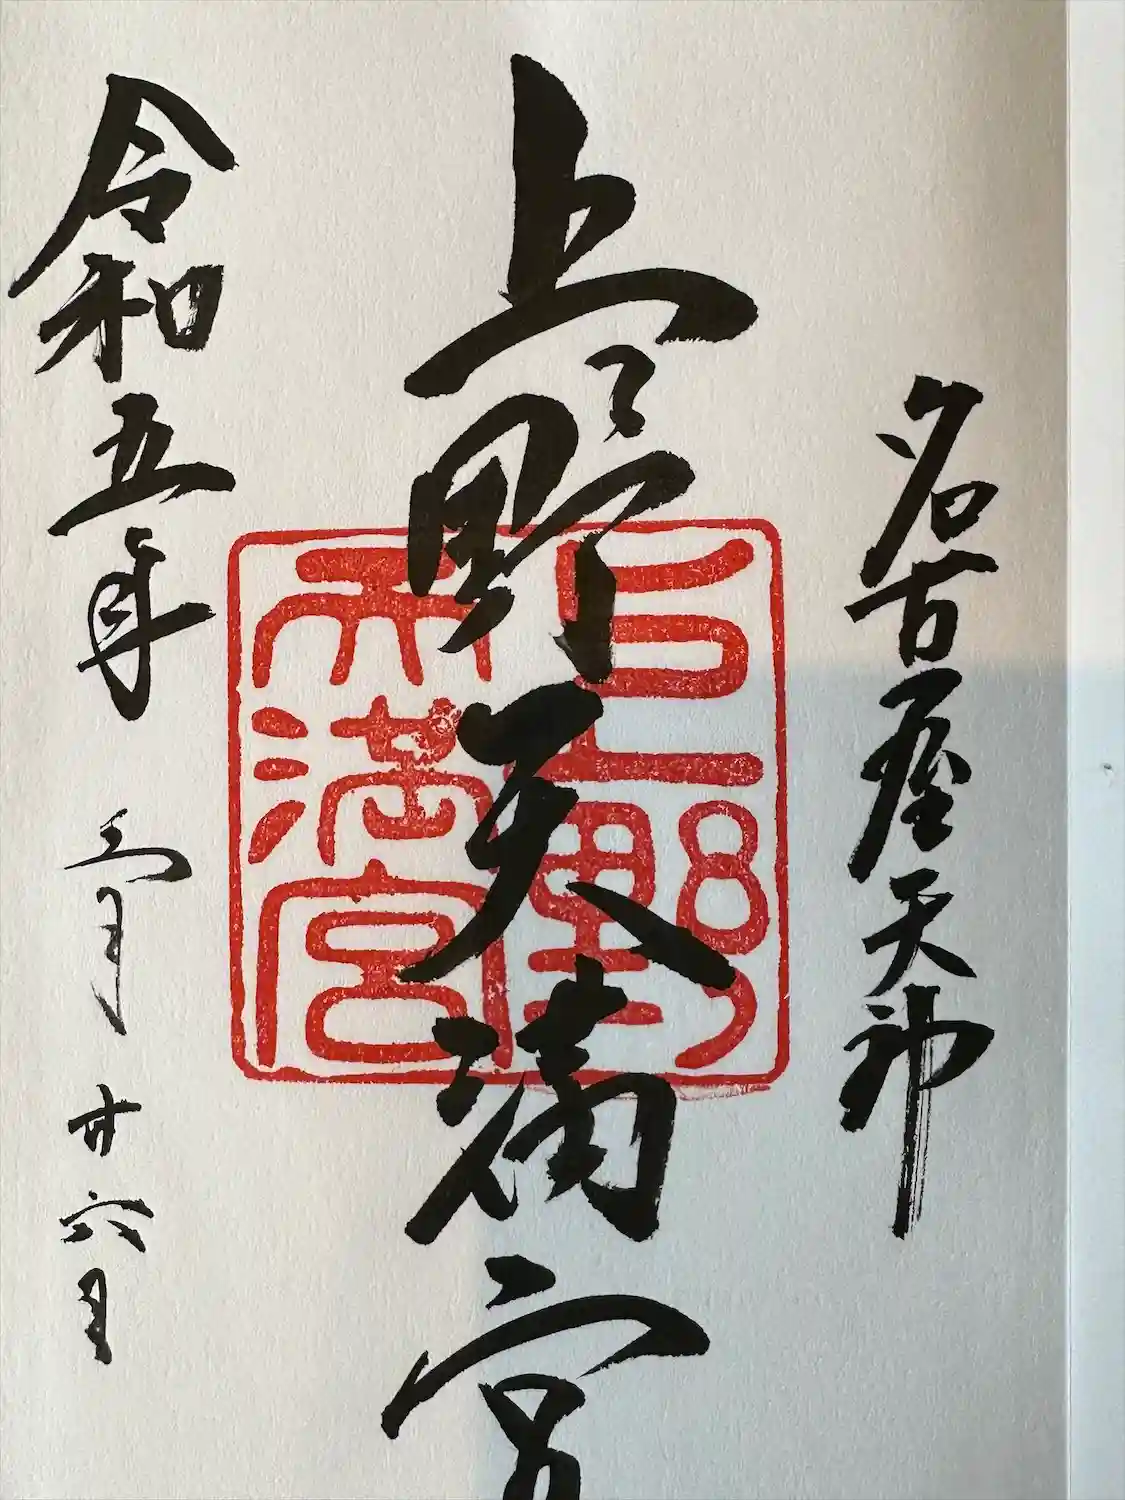 名古屋天神
上野天満宮
上野天満宮
令和五年 三月 廿六日